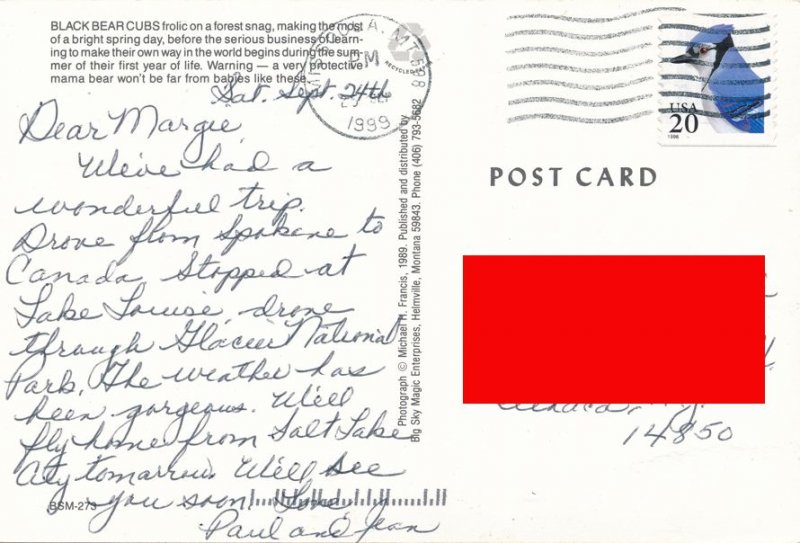 BLACK BEAR CUBS frolic on a forest snag, making the most
of a bright spring day, before the serious business of learn-
ing to make their own way in the world begins during the sum-
mer of their first year of life. Warning — a very protective
mama bear won't be far from babies like these.
Sat. Sept. 24th
Dear Margie,
We've had a
wonderful trip.
Drove from Spokane to
Canada. Stopped at
Lake Louise, drove
through Glacier National
Park. The weather has
been gorgeous. We'll
fly home from Salt Lake
City tomorrow. We'll see
you soon. Love,
Paul and Jean
BSM-273
Photograph © Michael H. Francis, 1989. Published and distributed by
Big Sky Magic Enterprises, Helmville, Montana 59843. Phone (406) 793-5682
RECYCLED
MT 598
PM
1999
USA
20
1996
POST CARD
Ithaca, N.Y.
14850